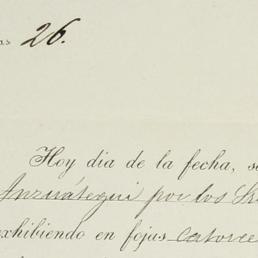 as 26.
Hoy dia de la fecha, s
Anzuátegui por los Sr
exhibiendo en fojas catorce